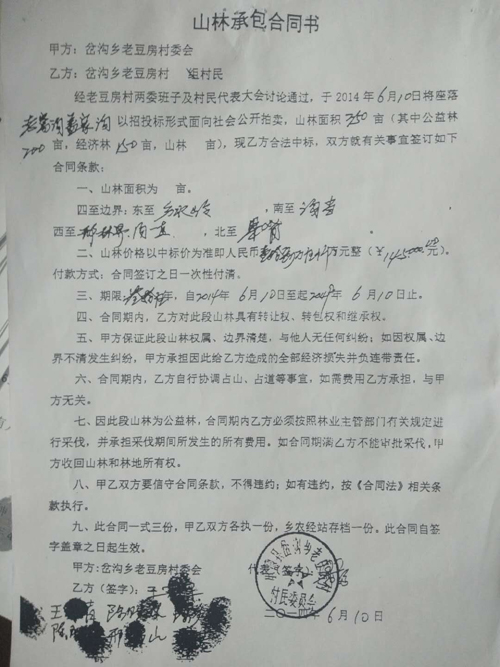 山林承包合同书
甲方：岔沟乡老豆房村委会
乙方：岔沟乡老豆房村 组村民
经老豆房村两委班子及村民代表大会讨论通过，于2014年6月10日将座落
以招投标形式面向社会公开拍卖，山林面积350亩（其中公益林
200亩，经济林150亩，山林 亩），现乙方合法中标，双方就有关事宜签订如下
合同条款：
一、山林面积为 亩。
四至边界：东至 ，南至
西至 ，北至
二、山林价格以中标价为准即人民币 万元整（￥145000元）。
付款方式：合同签订之日一次性付清。
三、期限 年，自2014年6月10日至 年6月10日止。
四、合同期内，乙方对此段山林具有转让权、转包权和继承权。
五、甲方保证此段山林权属、边界清楚，与他人无任何纠纷；如因权属、边
界不清发生纠纷，甲方承担因此给乙方造成的全部经济损失并负连带责任。
六、合同期内，乙方自行协调占山、占道等事宜，如需费用乙方承担，与甲
方无关。
七、因此段山林为公益林，合同期内乙方必须按照林业主管部门有关规定进
行采伐，并承担采伐期间所发生的所有费用。如合同期满乙方不能审批采伐，甲
方收回山林和林地所有权。
八、甲乙双方要信守合同条款，不得违约；如有违约，按《合同法》相关条
款执行。
九、此合同一式三份，甲乙双方各执一份，乡农经站存档一份。此合同自签
字盖章之日起生效。
甲方：岔沟乡老豆房村委会 代表
乙方（签字）：
村民委员会
二〇一四年6月10日